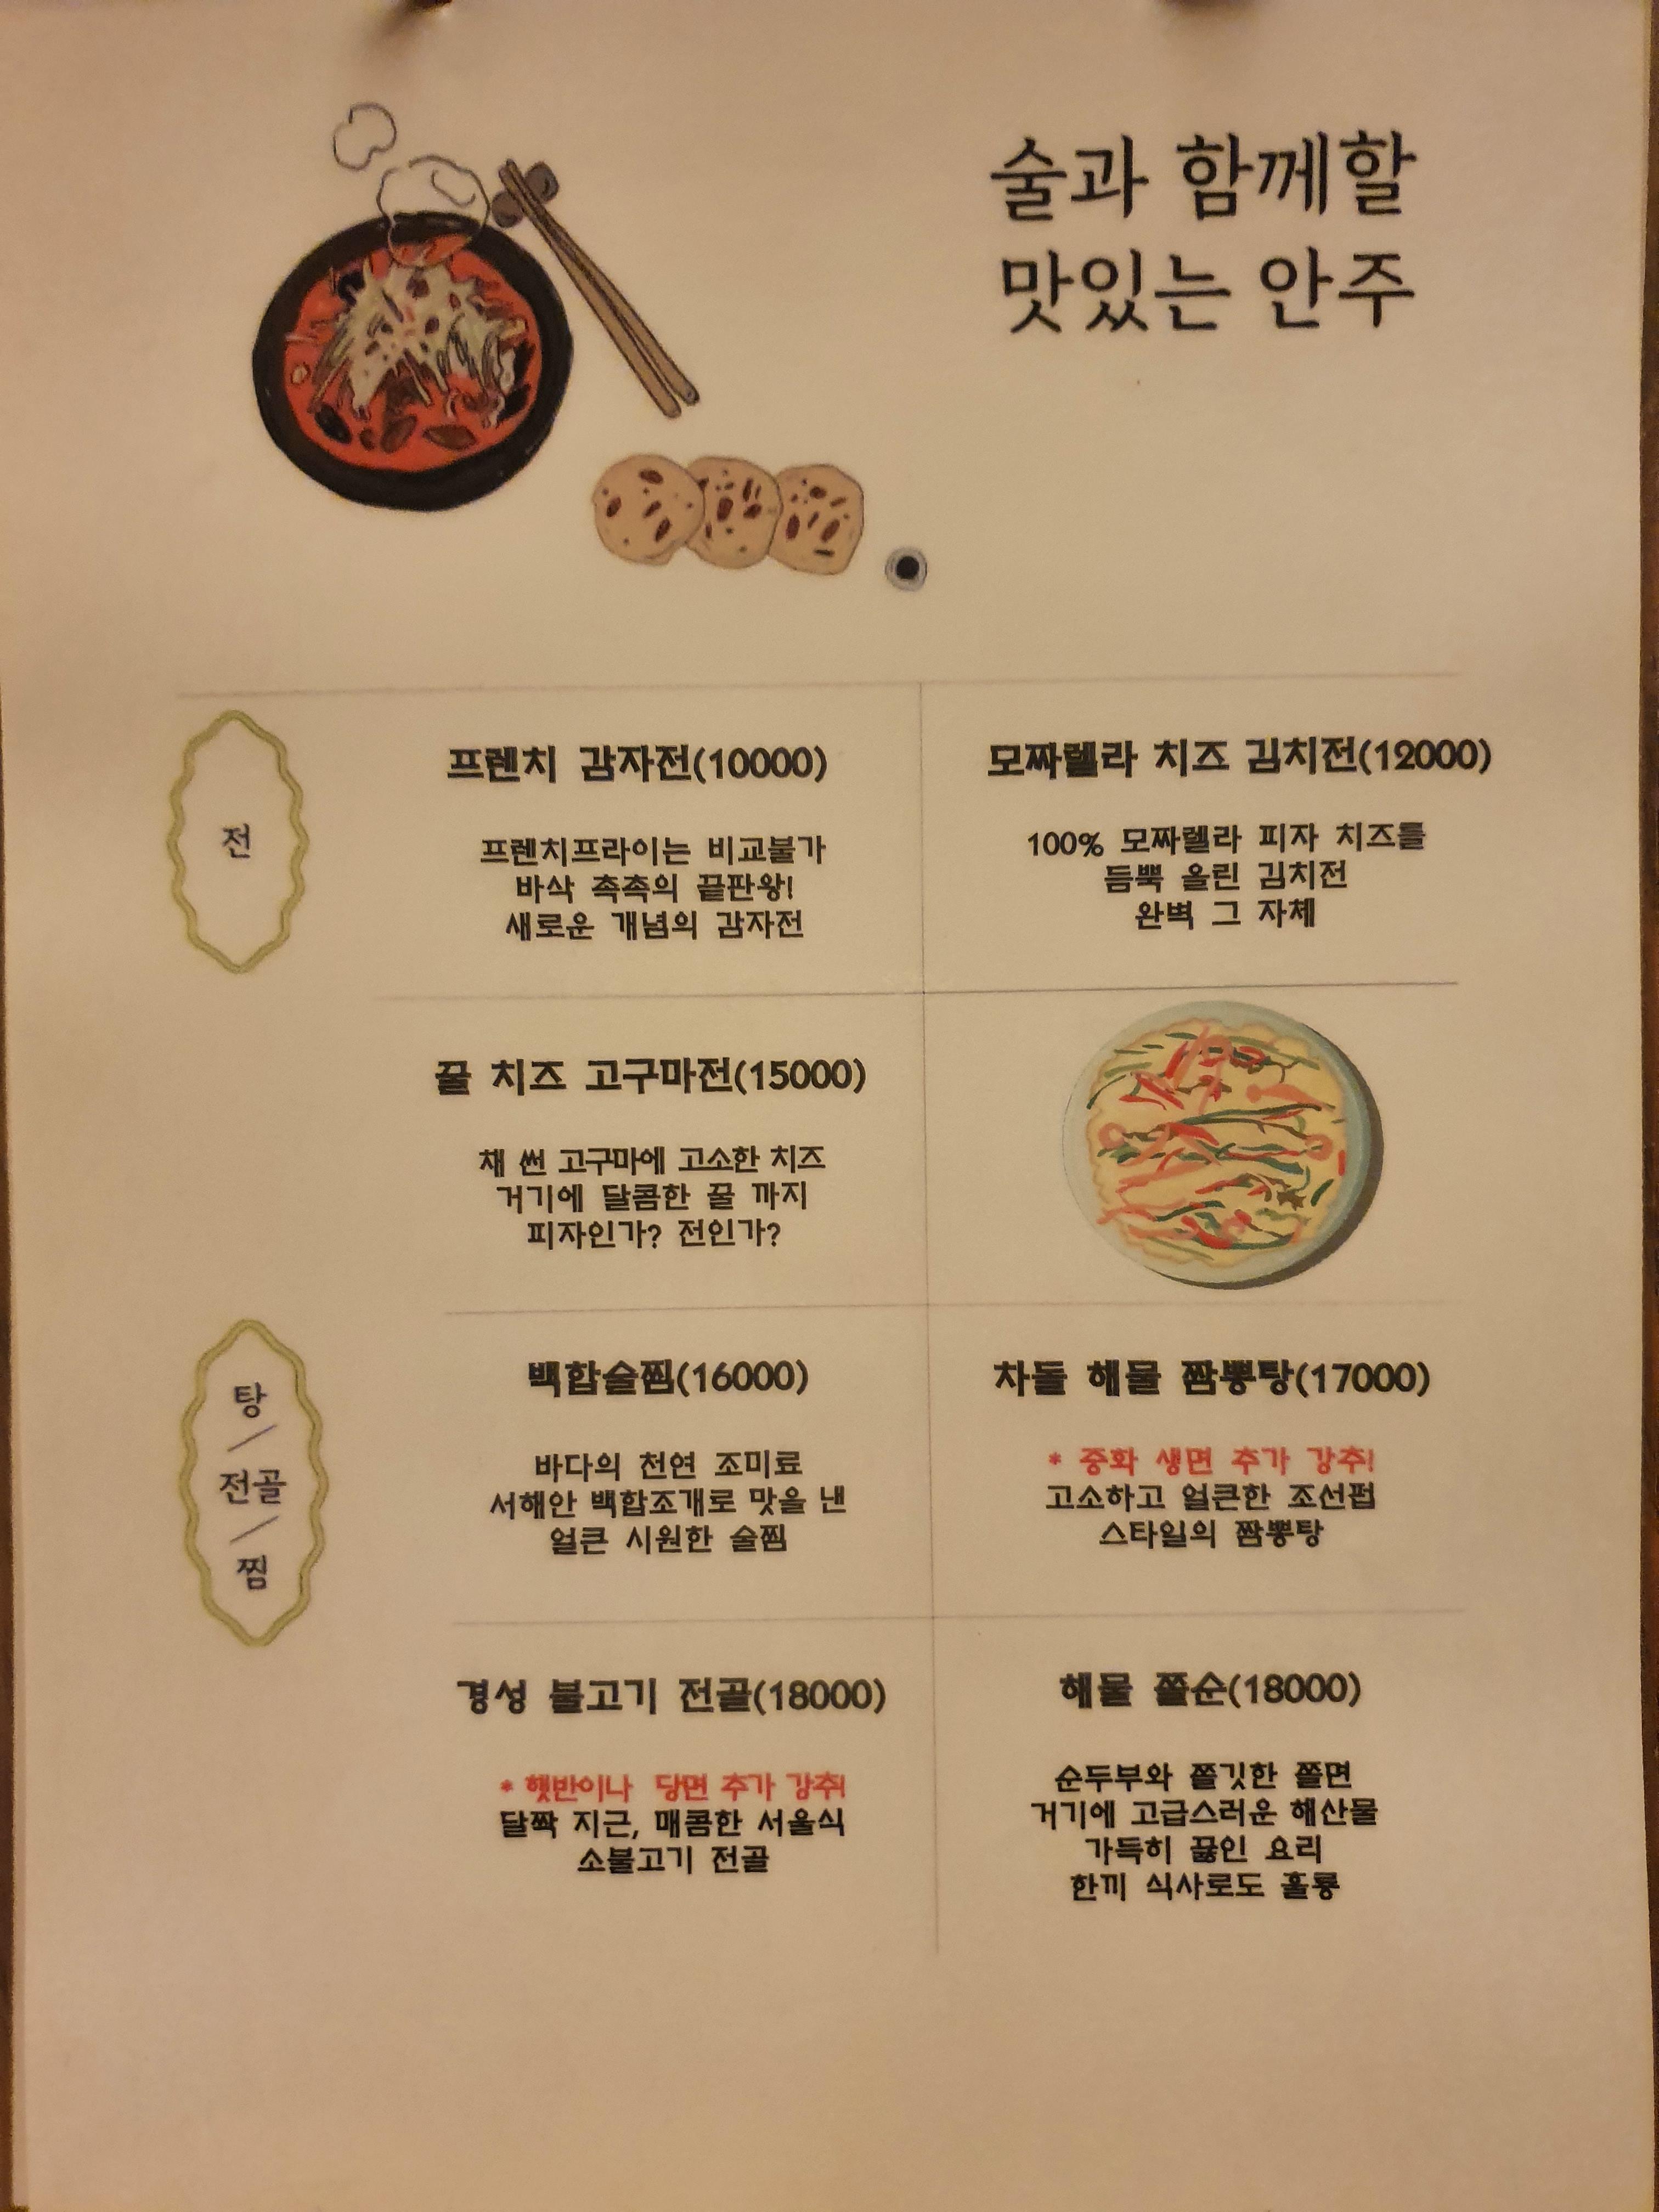 술과 함께할
맛있는 안주
전
프렌치 감자전(10000)
프렌치프라이는 비교불가
바삭 촉촉의 끝판왕!
새로운 개념의 감자전
모짜렐라 치즈 김치전(12000)
100% 모짜렐라 피자 치즈를
듬뿍 올린 김치전
완벽 그 자체
꿀 치즈 고구마전(15000)
채 썬 고구마에 고소한 치즈
거기에 달콤한 꿀 까지
피자인가? 전인가?
탕
/
전골
/
찜
백합술찜(16000)
바다의 천연 조미료
서해안 백합조개로 맛을 낸
얼큰 시원한 술찜
차돌 해물 짬뽕탕(17000)
* 중화 생면 추가 강추!
고소하고 얼큰한 조선펍
스타일의 짬뽕탕
경성 불고기 전골(18000)
* 햇반이나 당면 추가 강추!
달짝 지근, 매콤한 서울식
소불고기 전골
해물 쫄순(18000)
순두부와 쫄깃한 쫄면
거기에 고급스러운 해산물
가득히 끓인 요리
한끼 식사로도 훌륭